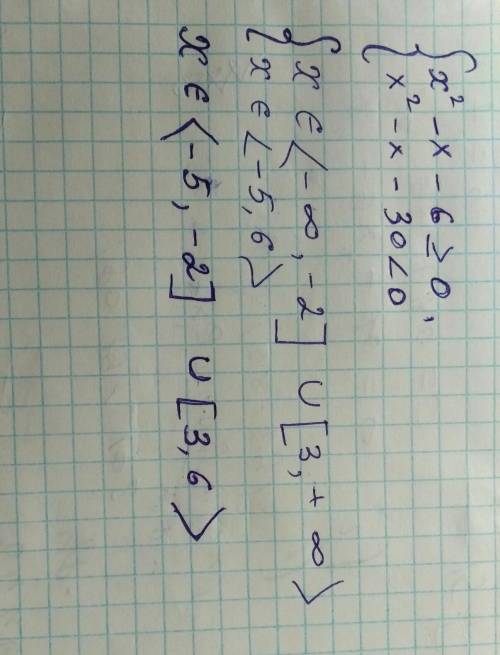 { x² - x - 6 ≥ 0,
{ x² - x - 30 < 0
{ x ∈ <-∞, -2] ∪ [3, +∞>
{ x ∈ <-5, 6>
x ∈ <-5, -2] ∪ [3, 6>